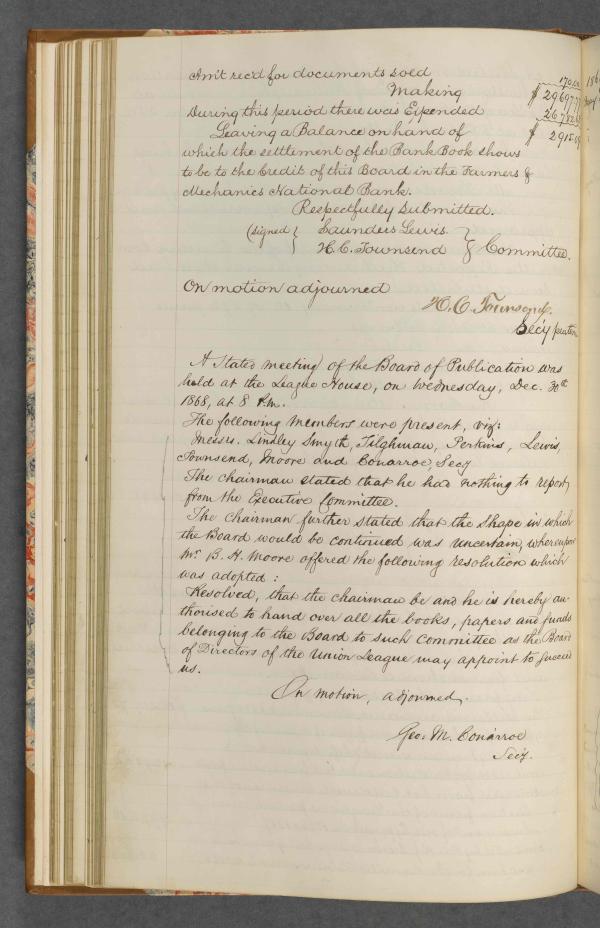 Am't rec'd for documents sold 170.00
Making $ 29697.77
During this period there was Expended 26782.68
Leaving a Balance on hand of $ 2915.09
which the settlement of the Bank Book shows
to be to the Credit of this Board in the Farmers &
Mechanics National Bank.
Respectfully submitted.
(signed { Saunders Lewis
H. C. Townsend } Committee.
On motion adjourned
H. C. Townsend,
Sec'y protem
A Stated meeting of the Board of Publication was
held at the League House, on Wednesday, Dec. 30th
1868, at 8 P.m.
The following members were present, viz:
Messrs. Lindley Smyth, Tilghman, Perkins, Lewis,
Townsend, Moore and Conarroe, Secy
The chairman stated that he had nothing to report
from the Executive Committee.
The chairman further stated that the shape in which
the Board would be continued was uncertain, whereupon
Mr. B. H. Moore offered the following resolution which
was adopted:
Resolved, that the chairman be and he is hereby au-
thorised to hand over all the books, papers and funds
belonging to the Board to such committee as the Board
of Directors of the Union League may appoint to succeed
us.
On motion, adjourned.
Geo. M. Conarroe
Secy.